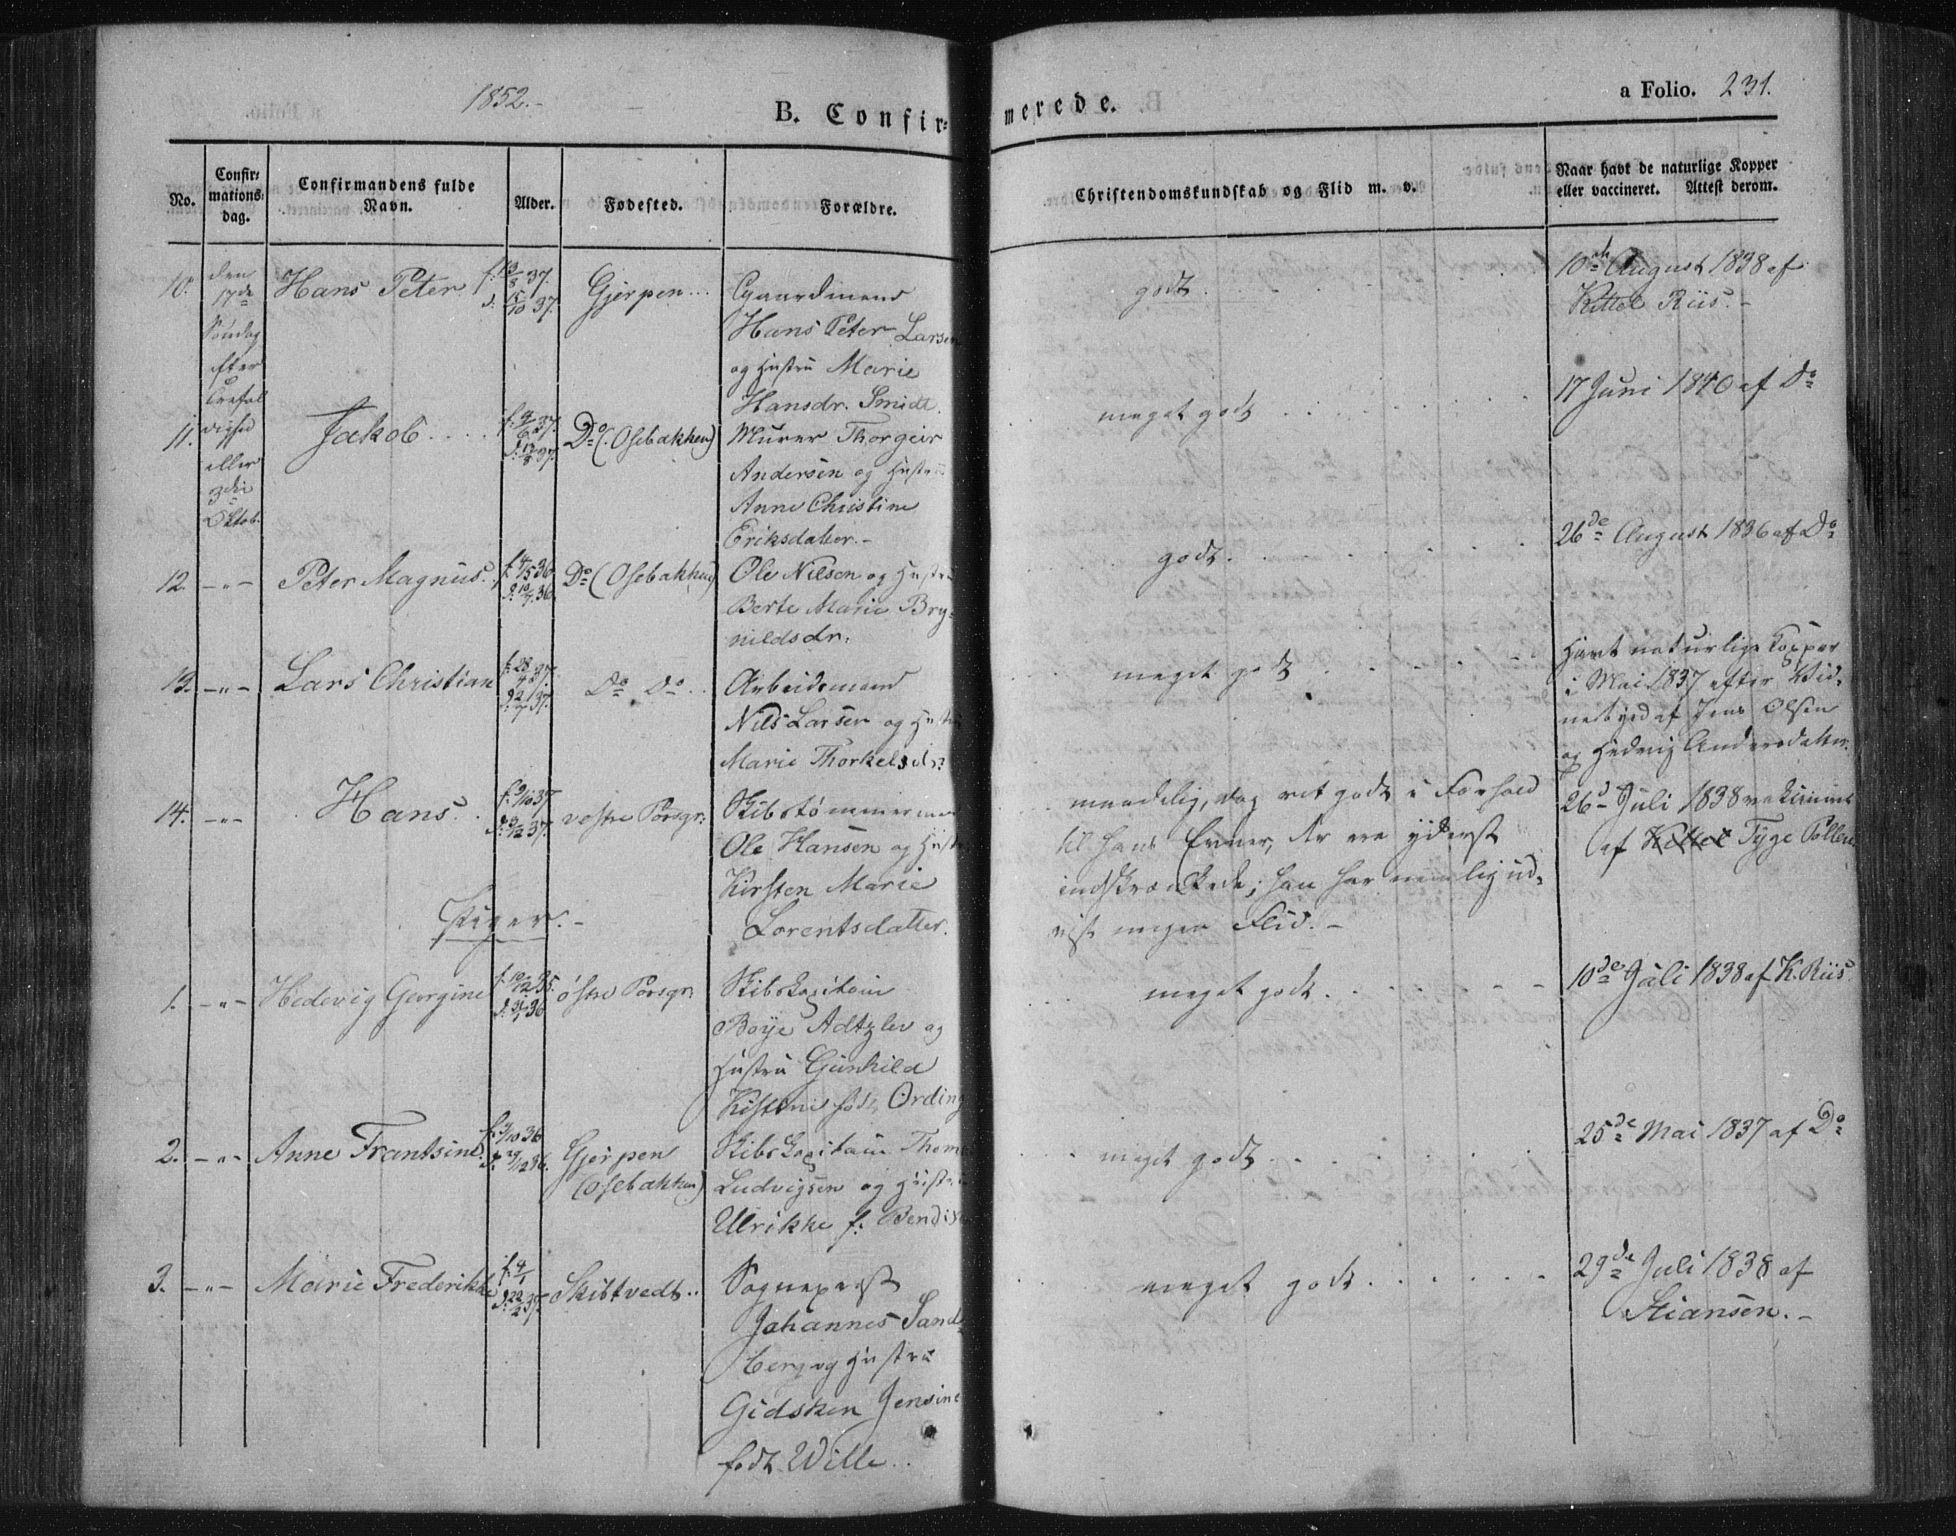 1852.-
B. Confir=
merede.
a Folio. 231.
No.
Confir=
mations=
dag.
Confirmandens fulde
Navn.
Alder.
Fødested.
Forældre.
Christendomskundskab og Flid m. v.
Naar havt de naturlige Kopper
eller vaccineret. Attest derom.
10.
den
17de
Søndag
efter
Trefol
dighed
eller
3die
Oktob.
Hans Peter
f. 13/8 37.
d. 15/10 37.
Gjerpen...
Gaardmand
Hans Peter Larsen
og Hustru Marie
Hansdr. Smidt.
godt
10de August 1838 af
Kittel Riis.-
11.
Jakob....
f. 9/6 37.
d. 13/8 37.
Do (Osebakken)
Murer Thorgeir
Andersen og Hustru
Anne Christine
Eriksdatter.-
meget godt
17 Juni 1840 af Do
12. -"-
Peter Magnus.
f. 4/5 36
d. 10/7 36.
Do (Osebakken)
Ole Nilsen og Hustru
Berte Marie Bry=
nildsdr.
godt
26de August 1836 af Do
13. -"-
Lars Christian
f. 28/4 37.
d. 2/7 37.
Do Do..
Arbeidsmand
Nils Larsen og Hustru
Marie Thorkelsdr.
meget godt
Havt naturlige Kopper
i Mai 1837 efter Vid=
nesbyrd af Jens Olsen
og Hedvig Andersdatter.
14. -"-
Hans.
f. 9/10 37
d. 3/12 37.
vestre Porsgr.
Skibstømmermand
Ole Hansen og Hustru
Kirsten Marie
Lorentsdatter.
maadelig, dog ret godt i Forhold
til hans Evner, der ere yderst
indskrænkede; han har nemlig ud=
vist megen Flid.-
26d Juli 1838 vakcineret
af Kittel Tyge Pollen
Piger.-
1. -"-
Hedevig Georgine
f. 10/12 35.
d. 31/1 36
østre Porsgr.
Skibskapitain
Boye Adtzlev og
Hustru Gunhild
Kistine født Ording
meget godt
10de Juli 1838 af K. Riis
2. -"-
Anne Frantsine.
f. 3/10 36
d. 26/12 36.
Gjerpen
(Osebakken)
Skibskapitain Thomas
Ludvigsen og Hustru
Ulrikke f. Bendixen
meget godt
25de Mai 1837 af Do
3. -"-
Marie Frederikke
f. 4/1
d. 22/2 37.
Skibtvedt..
Sogneprest
Johannes Sand=
berg og Hustru
Gidsken Jensine
født Wille..
meget godt
29de Juli 1838 af
Stiansen.-